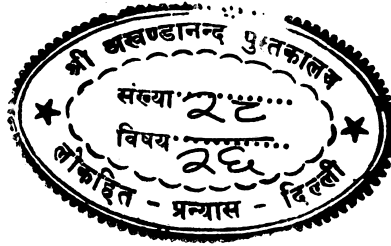 श्री अखण्डानन्द पुस्तकालय
संख्या २८
विषय २६
लोकहित - प्रन्यास - दिल्ली